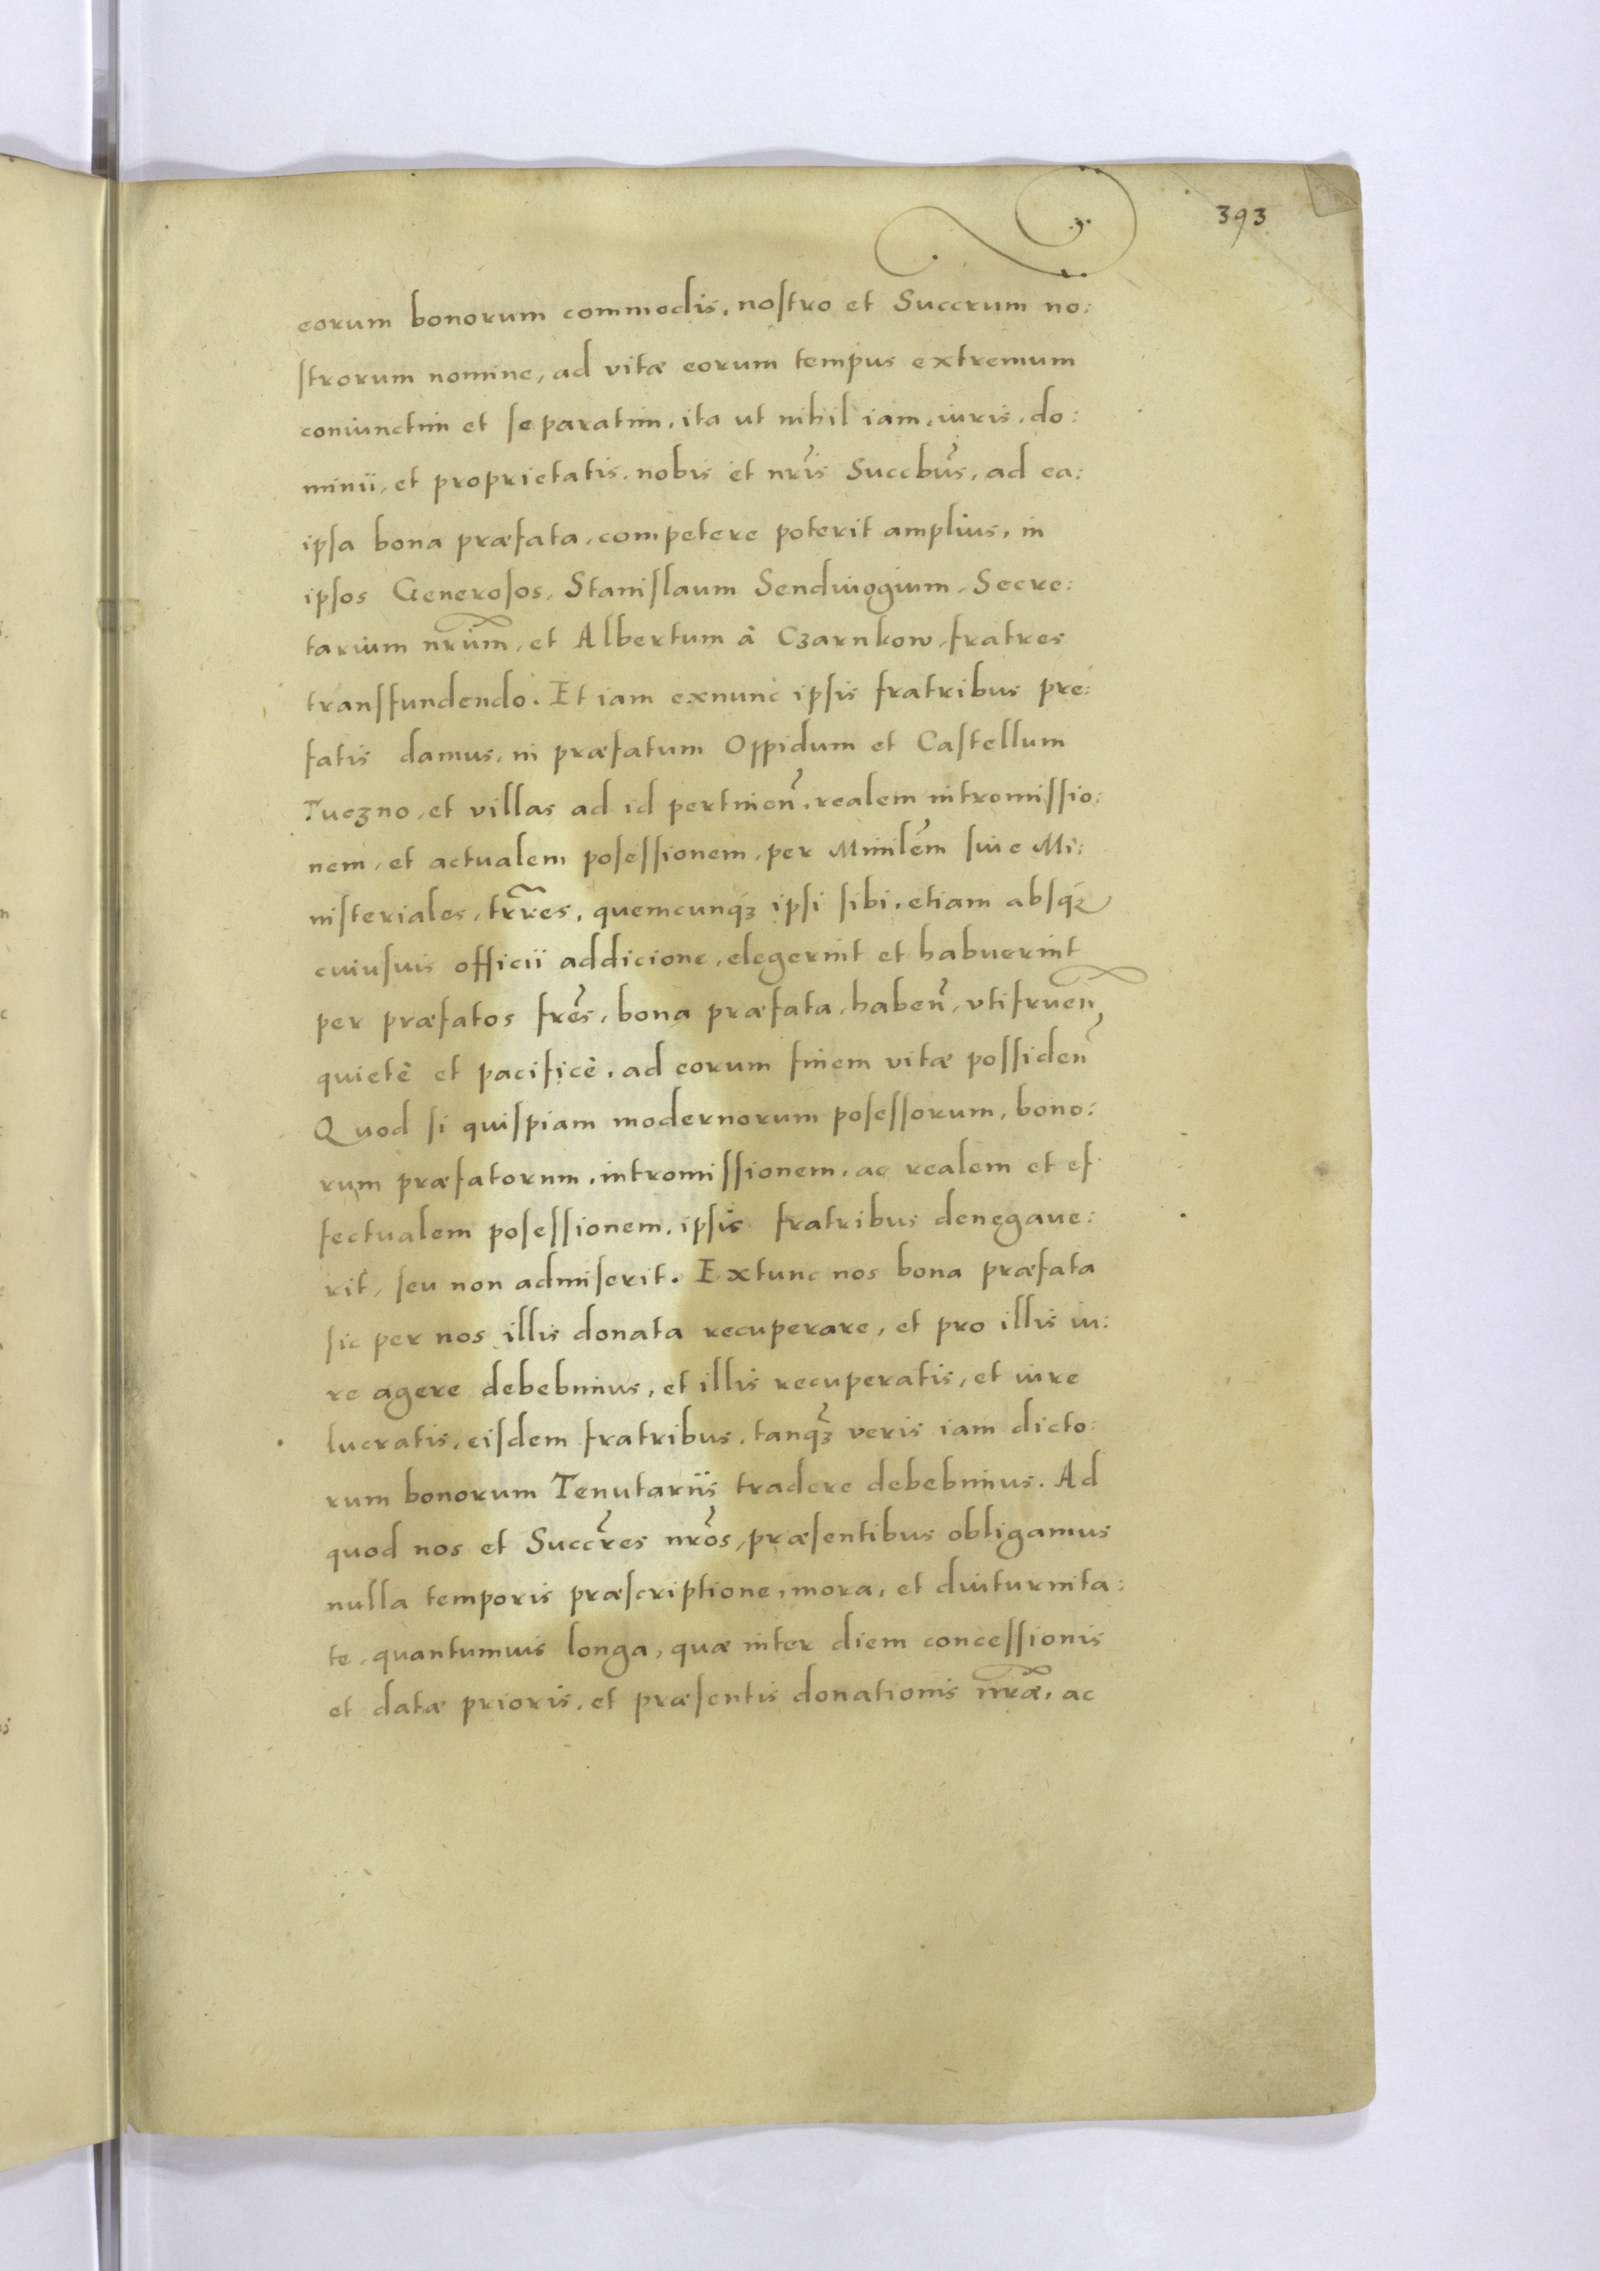 393
eorum bonorum commodis, nostro et Succrum no:
strorum nomine, ad vitæ eorum tempus extremum
coniunctim et separatim, ita ut nihil iam, iuris, do:
minii, et proprietatis, nobis et nr̃is Succbus̃, ad ea:
ipsa bona præfata, competere poterit amplius, in
ipsos Generosos, Stanislaum Sendiuogium, Secre:
tarium nrum̃, et Albertum à Czarnkow, fratres
transfundendo. Et iam exnunc ipsis fratribus pre:
fatis damus, in præfatum Oppidum et Castellum
Tuczno, et villas ad id pertinen̄, realem intromissio:
nem, et actualem posessionem, per Minilem̃ siue Mi:
nisteriales, trr̃es, quemcunq̨ ipsi sibi, etiam absq̨
cuiusuis officii addicione, elegerint et habuerint
per præfatos frẽs, bona præfata, haben̄, vtifruen̄
quietè et pacificè, ad eorum finem vitæ possiden̄
Quod si quispiam modernorum posessorum, bono:
rum præfatorum, intromissionem, ac realem et ef
fectualem posessionem, ipsis fratribus denegaue:
rit, seu non admiserit. Extunc nos bona præfata
sic per nos illis donata recuperare, et pro illis iu:
re agere debebimus, et illis recuperatis, et iure
lucratis, eisdem fratribus, tanq̨̃ veris iam dicto:
rum bonorum Tenutariis tradere debebimus. Ad
quod nos et Succr̃es nrõs, præsentibus obligamus
nulla temporis præscriptione, mora, et diuturnita:
te, quantumuis longa, quæ inter diem concessionis
et datæ prioris, et præsentis donationis nræ̃, ac